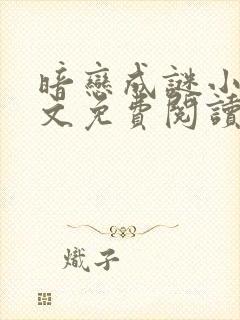 暗戀成謎小
文免費閱讀
熾子